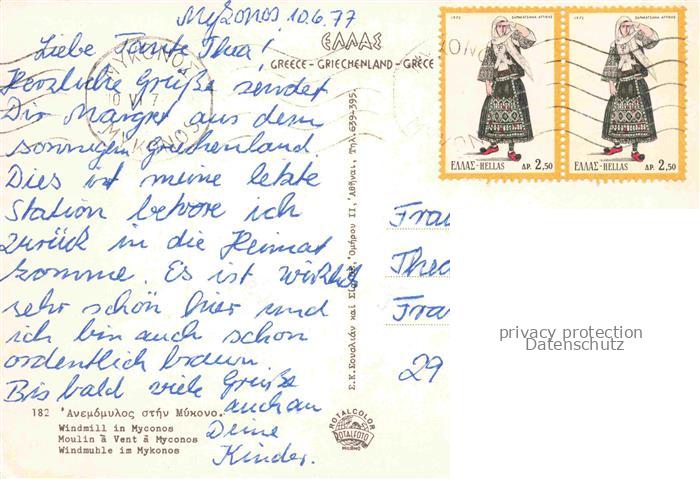 Mykonos 10.6.77
Liebe Tante Thea!
Herzliche Grüße sendet
Dir Margret aus dem
sonnigen Griechenland.
Dies ist meine letzte
Station bevore ich
zurück in die Heimat
komme. Es ist wirklich
sehr schön hier und
ich bin auch schon
ordentlich braun.
Bis bald viele Grüße
auch an
Deine
Kinder.
ΕΛΛΑΣ
GREECE - GRIECHENLAND - GRÈCE
ΜΥΚΟΝΟΣ
MYKONOS
1972
ΣΑΡΑΚΑΤΣΑΝΑ ΑΤΤΙΚΗΣ
ΕΛΛΑΣ-HELLAS ΔΡ. 2,50
ΣΑΡΑΚΑΤΣΑΝΑ ΑΤΤΙΚΗΣ
ΕΛΛΑΣ-HELLAS ΔΡ. 2,50
Ὁμήρου 11, Ἀθῆναι, Τηλ. 639-395.
Frau
Thea
Fra
29
privacy protection
Datenschutz
182 Ἀνεμόμυλος στήν Μύκονο.
Windmill in Myconos
Moulin à Vent à Myconos
Windmuhle im Mykonos
ROTALCOLOR
ROTALFOTO
MILANO